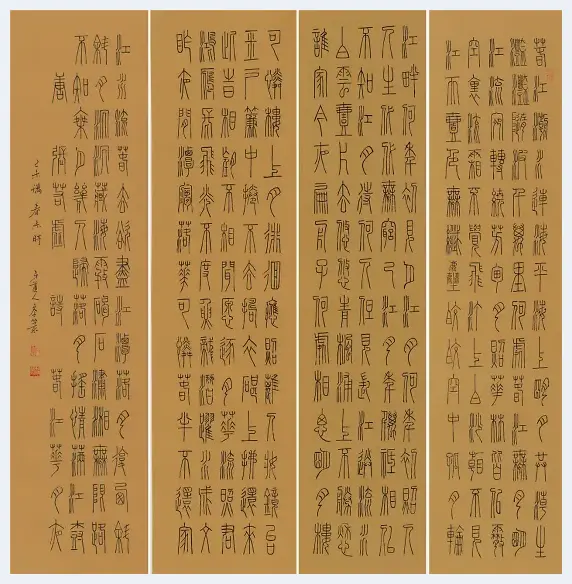 春江潮水連海平海上明月共潮生
灩灩隨波千萬里何處春江無月明
江流宛轉繞芳甸月照花林皆似霰
空裏流霜不覺飛汀上白沙看不見
江天壹色無纖塵皎皎空中孤月輪
江畔何人初見月江月何年初照人
人生代代無窮已江月年年祇相似
不知江月待何人但見長江送流水
白雲壹片去悠悠青楓浦上不勝愁
誰家今夜扁舟子何處相思明月樓
可憐樓上月徘徊應照離人妝鏡台
玉戶簾中捲不去搗衣砧上拂還來
此時相望不相聞願逐月華流照君
鴻雁長飛光不度魚龍潛躍水成文
昨夜閒潭夢落花可憐春半不還家
江水流春去欲盡江潭落月復西斜
斜月沉沉藏海霧碣石瀟湘無限路
不知乘月幾人歸落月搖情滿江樹
唐 張若虛 詩 春江花月夜